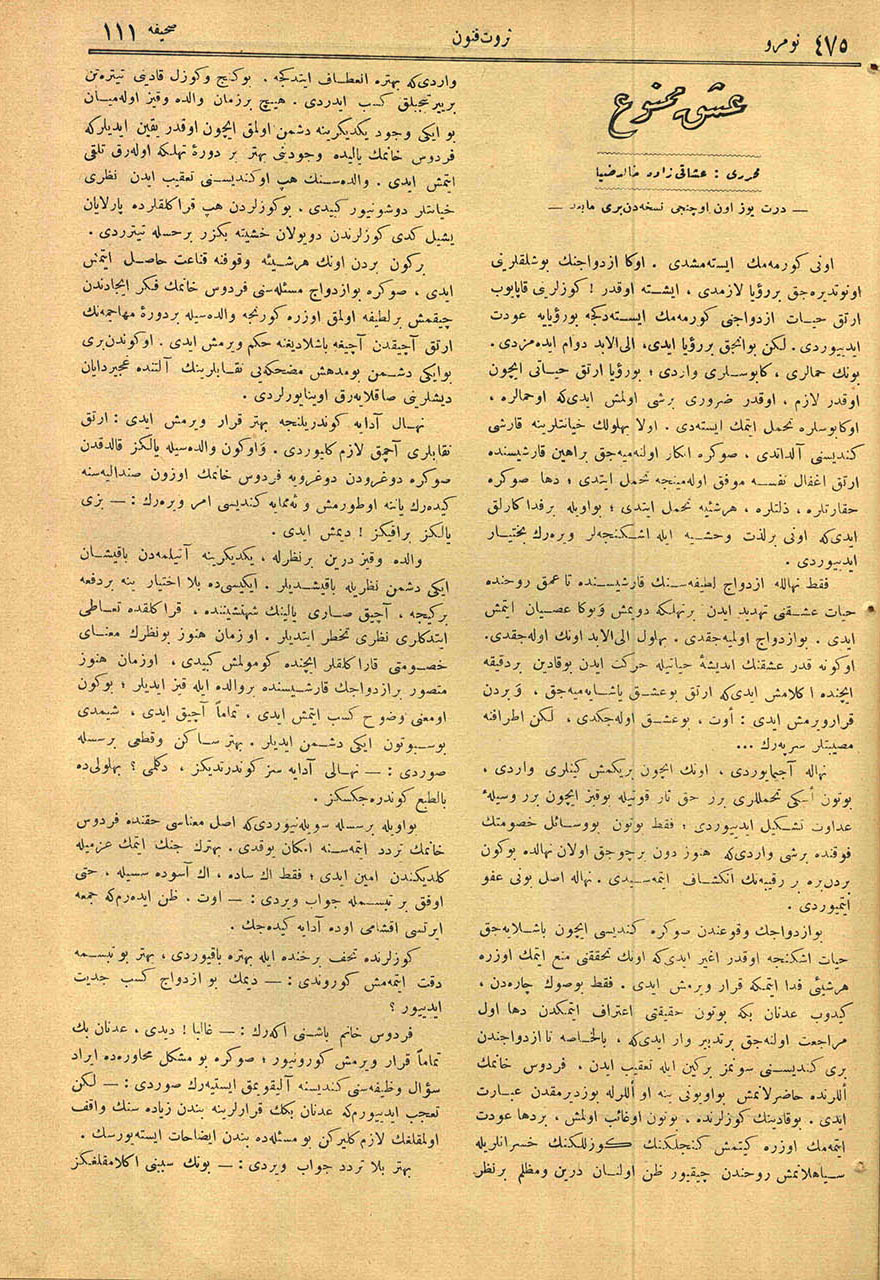 ٤٧٥ نومرو
ثروت فنون
صحیفه ١١١
عشق ممنوع
محرری : عشاقی زاده خالد ضیا
— درت یوز اون اوچنجی نسخه‌دن‌بری مابعد —
اونی کورمه‌مك ایسته‌مشدی . اوکا ازدواجنك بوشلقلرینی
اونوتدیره‌جق بررؤیا لازمدی ، ایشته اوقدر ! کوزلرینی قاپایوب
ارتق حیات ازدواجنی کورمه‌مك ایسته‌دکجه بورؤیایه عودت
ایدییوردی . لکن بوانجق بررؤیا ایدی، الی‌الابد دوام ایده‌مزدی .
بونك حمالری ، کابوسلری واردی ؛ بورؤیا ارتق حیاتی ایچون
اوقدر لازم ، اوقدر ضروری برشی اولمش ایدی‌که اوحمالره ،
اوکابوسلره تحمل ایتمك ایسته‌دی . اولا بهلولك خیانتلرینه قارشی
کندیسنی آلداتدی ، صوکره انکار اولنه‌میه‌جق براهین قارشیسنده
ارتق اغفال نفسه موفق اوله‌مینجه تحمل ایتدی ؛ دها صوکره
حقارتلره ، ذلتلره ، هرشیئه تحمل ایتدی ؛ بواویله برفداکارلق
ایدی‌که اونی برلذت وحشیه ایله اشکنجه‌لر ویره‌رك بختیار
ایدییوردی .
فقط نهالله ازدواج لطیفه‌سنك قارشیسنده تا عمق روحنده
حیات عشقنی تهدید ایدن برتهلکه دویمش وبوکا عصیان ایتمش
ایدی . بوازدواج اولمیه‌جقدی . بهلول الی‌الابد اونك اوله‌جقدی.
اوکونه قدر عشقنك اندیشهٔ حیاتیله حرکت ایدن بوقادین بردقیقه
ایچنده اکلامش ایدی‌که ارتق بوعشق یاشایه‌میه‌جق ، وبردن
قرارویرمش ایدی : أوت ، بوعشق اوله‌جکدی ، لکن اطرافنه
مصیبتلر سرپه‌رك ...
نهاله آجیمایوردی ، اونك ایچون بریکمش کینلری واردی ،
بوتون أسکی تحمللری برر حق ثار قوتیله بوقیز ایچون برر وسیلهٔ
عداوت تشکیل ایدییوردی ؛ فقط بوتون بووسائل خصومتك
فوقنده برشی واردی‌که هنوز دون برچوجق اولان نهالده بوکون
بردن‌بره بر رقیبه‌نك انکشاف ایتمه‌سیدی . نهاله اصل بونی عفو
ایتمیوردی .
بوازدواجك وقوعندن صوکره کندیسی ایچون باشلایه‌جق
حیات اشکنجه اوقدر اغیر ایدی‌که اونك تحققنی منع ایتمك اوزره
هرشیئی فدا ایتمکه قرار ویرمش ایدی . فقط بوصوك چاره‌دن ،
کیدوب عدنان بکه بوتون حقیقتی اعتراف ایتمکدن دها اول
مراجعت اولنه‌جق برتدبیر وار ایدی‌که ، بالخاصه تا ازدواجندن
بری کندیسنی سونمز برکین ایله تعقیب ایدن ، فردوس خانمك
أللرنده حاضرلانمش بواویونی ینه او أللرله بوزدیرمقدن عبارت
ایدی . بوقادینك کوزلرنده ، بوتون اوغائب اولمش ، بردها عودت
ایتمه‌مك اوزره کیتمش کنجلکنك کوزللکنك خسرانلریله
سیاهلانمش روحندن چیقیور ظن اولنان درین ومظلم برنظر
واردی‌که بهتره انعطاف ایتدکجه . بوکنج وکوزل قادینی تیتره‌تن
بربیرتیجیلق کسب ایدردی . هیچ برزمان والده وقیز اوله‌میان
بو ایکی وجود یکدیکرینه دشمن اولمق ایچون اوقدر یقین ایدیلرکه
فردوس خانمك یالیده وجودینی بهتر بر دورهٔ تهلکه اوله‌رق تلقی
ایتمش ایدی . والده‌سنك هپ اوکندیسنی تعقیب ایدن نظری
خیانتلر دوشونیور کبیدی . بوکوزلردن هپ قراکلقلرده پارلایان
یشیل کدی کوزلرندن دویولان خشیته بکزر برحسله تیتردی .
برکون بردن اونك هرشیئه وقوفنه قناعت حاصل ایتمش
ایدی ، صوکره بوازدواج مسئله‌سنی فردوس خانمك فکر ایجادندن
چیقمش برلطیفه اولمق اوزره کورنجه والده‌سیله بردورهٔ مهاجمه‌نك
ارتق آچیقدن آچیغه باشلادیغنه حکم ویرمش ایدی . اوکوندن‌بری
بوایکی دشمن بومدهش مضحکه‌یی نقابلرینك آلتنده غجیردایان
دیشلرینی صاقلایه‌رق اوینایورلردی .
نهال آدایه کوندریلنجه بهتر قرار ویرمش ایدی : ارتق
نقابلری آچمق لازم کلیوردی . واوکون والده‌سیله یالکز قالدقدن
صوکره دوغرودن دوغرویه فردوس خانمك اوزون صندالیه‌سنه
کیده‌رك یاننه اوطورمش و نه‌مماه کندیسی امر ویره‌رك : — بزی
یالکز براقیکز ! دیمش ایدی .
والده وقیز درین برنظرله ، یکدیکرینه آتیلمه‌دن باقیشان
ایکی دشمن نظریله باقیشدیلر . ایکیسی‌ده بلا اختیار ینه بردفعه
برکیجه ، آچیق صاری یالینك شهنشیننده ، قراکلقده تعاطی
ایتدکاری نظری تخطر ایتدیلر . اوزمان هنوز بونظرك معنای
خصومتی قاراکلقلر ایچنده کومولمش کبیدی ، اوزمان هنوز
متصور برازدواجك قارشیسنده بروالده ایله قیز ایدیلر ؛ بوکون
اومعنی وضوح کسب ایتمش ایدی ، تماماً آچیق ایدی ، شیمدی
بوسبوتون ایکی دشمن ایدیلر . بهتر ساکن وقطعی برسسله
صوردی : — نهالی آدایه سز کوندرتدیکز ، دکلمی ؟ بهلولی‌ده
بالطبع کوندره‌جکسکز .
بواویله برسسله سویله‌نیوردی‌که اصل معناسی حقنده فردوس
خانمك تردد ایتمه‌سنه امکان یوقدی . بهترك جنك ایتمك عزمیله
کلدیکندن امین ایدی ؛ فقط اك ساده ، اك آسوده سسیله ، حتی
اوفق بر تبسمله جواب ویردی : — اوت . ظن ایده‌رم‌که جمعه
ایرتسی اقشامی اوده آدایه کیده‌جك .
کوزلرنده تحف برخنده ایله بهتره باقیوردی ، بهتر بو تبسمه
دقت ایتمه‌مش کوروندی : — دیمك بو ازدواج کسب جدیت
ایدییور ؟
فردوس خانم باشنی اکه‌رك : — غالبا ! دیدی ، عدنان بك
تماماً قرار ویرمش کورونیور ؛ صوکره بو مشکل محاوره‌ده ایراد
سؤال وظیفه‌سنی کندیسنه آلیقویمق ایستیه‌رك صوردی : — لکن
تعجب ایدییورم‌که عدنان بکك قرارلرینه بندن زیاده سنك واقف
اولمقلغك لازم کلیرکن بو مسئله‌ده بندن ایضاحات ایسته‌یورسك .
بهتر بلا تردد جواب ویردی : — بونك سببنی اکلامقلغکز